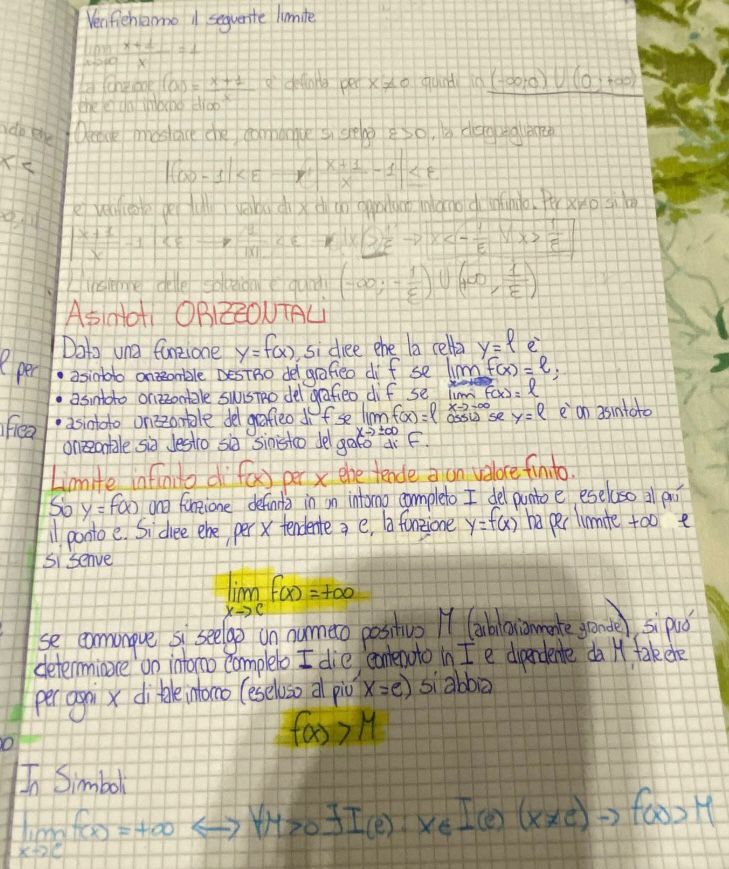 Verifichiamo il seguente limite
lim x+1/x = 1
x→∞
La funzione f(x) = x+1/x è definita per x≠0 quindi in (-∞;0) ∪ (0;+∞)
che è un intorno di ∞
Occorre mostrare che, comunque si scelga ε>0, la disuguaglianza
|f(x)-1|<ε → |x+1/x - 1|<ε
è verificata per tutti i valori di x di un opportuno intorno di infinito. Per x≠0 si ha
|x+1/x - 1|<ε → 1/|x| < ε → |x|>1/ε → x<-1/ε ∨ x>1/ε
L'insieme delle soluzioni è quindi (-∞; -1/ε) ∪ (+∞, 1/ε)
Asintoti ORIZZONTALI
Data una funzione y=f(x), si dice che la retta y=l è
• asintoto orizzontale DESTRO del grafico di f se lim f(x)=l;
• asintoto orizzontale SINISTRO del grafico di f se lim f(x)=l
x→-∞
• asintoto orizzontale del grafico di f se lim f(x)=l ossia se y=l è un asintoto
x→±∞
orizzontale sia destro sia sinistro del di F.
Limite infinito di f(x) per x che tende a un valore finito.
Sia y=f(x) una funzione definita in un intorno completo I del punto c escluso al più
il punto c. Si dice che, per x tendente a c, la funzione y=f(x) ha per limite +∞ e
si scrive
lim f(x)=+∞
x→c
se comunque si scelga un numero positivo M (arbitrariamente grande), si può
determinare un intorno completo I di c contenuto in I e dipendente da M, tale che
per ogni x di tale intorno (escluso al più x=c) si abbia
f(x)>M
In Simboli
lim f(x)=+∞ ⟷ ∀M>0 ∃I(c): x∈I(c) (x≠c) → f(x)>M
x→c